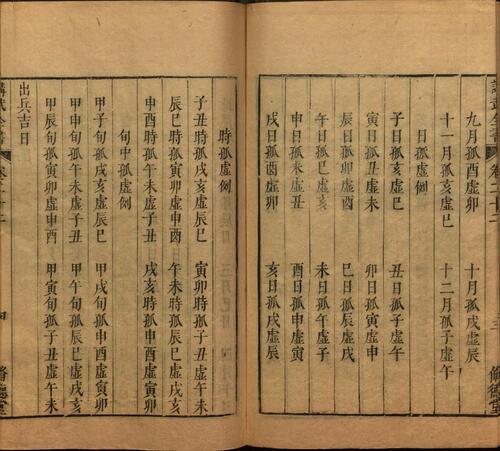 九月孤酉虛卯　十月孤戌虛辰
十一月孤亥虛巳　十二月孤子虛午
日孤虛例
子日孤亥虛巳　丑日孤子虛午
寅日孤丑虛未　卯日孤寅虛申
辰日孤卯虛酉　巳日孤辰虛戌
午日孤巳虛亥　未日孤午虛子
申日孤未虛丑　酉日孤申虛寅
戌日孤酉虛卯　亥日孤戌虛辰
時孤虛例
子丑時孤戌亥虛辰巳　寅卯時孤子丑虛午未
辰巳時孤寅卯虛申酉　午未時孤辰巳虛戌亥
申酉時孤午未虛子丑　戌亥時孤申酉虛寅卯
旬中孤虛例
甲子旬孤戌亥虛辰巳　甲戌旬孤申酉虛寅卯
甲申旬孤午未虛子丑　甲午旬孤辰巳虛戌亥
甲辰旬孤寅卯虛申酉　甲寅旬孤子丑虛午未
出兵吉日